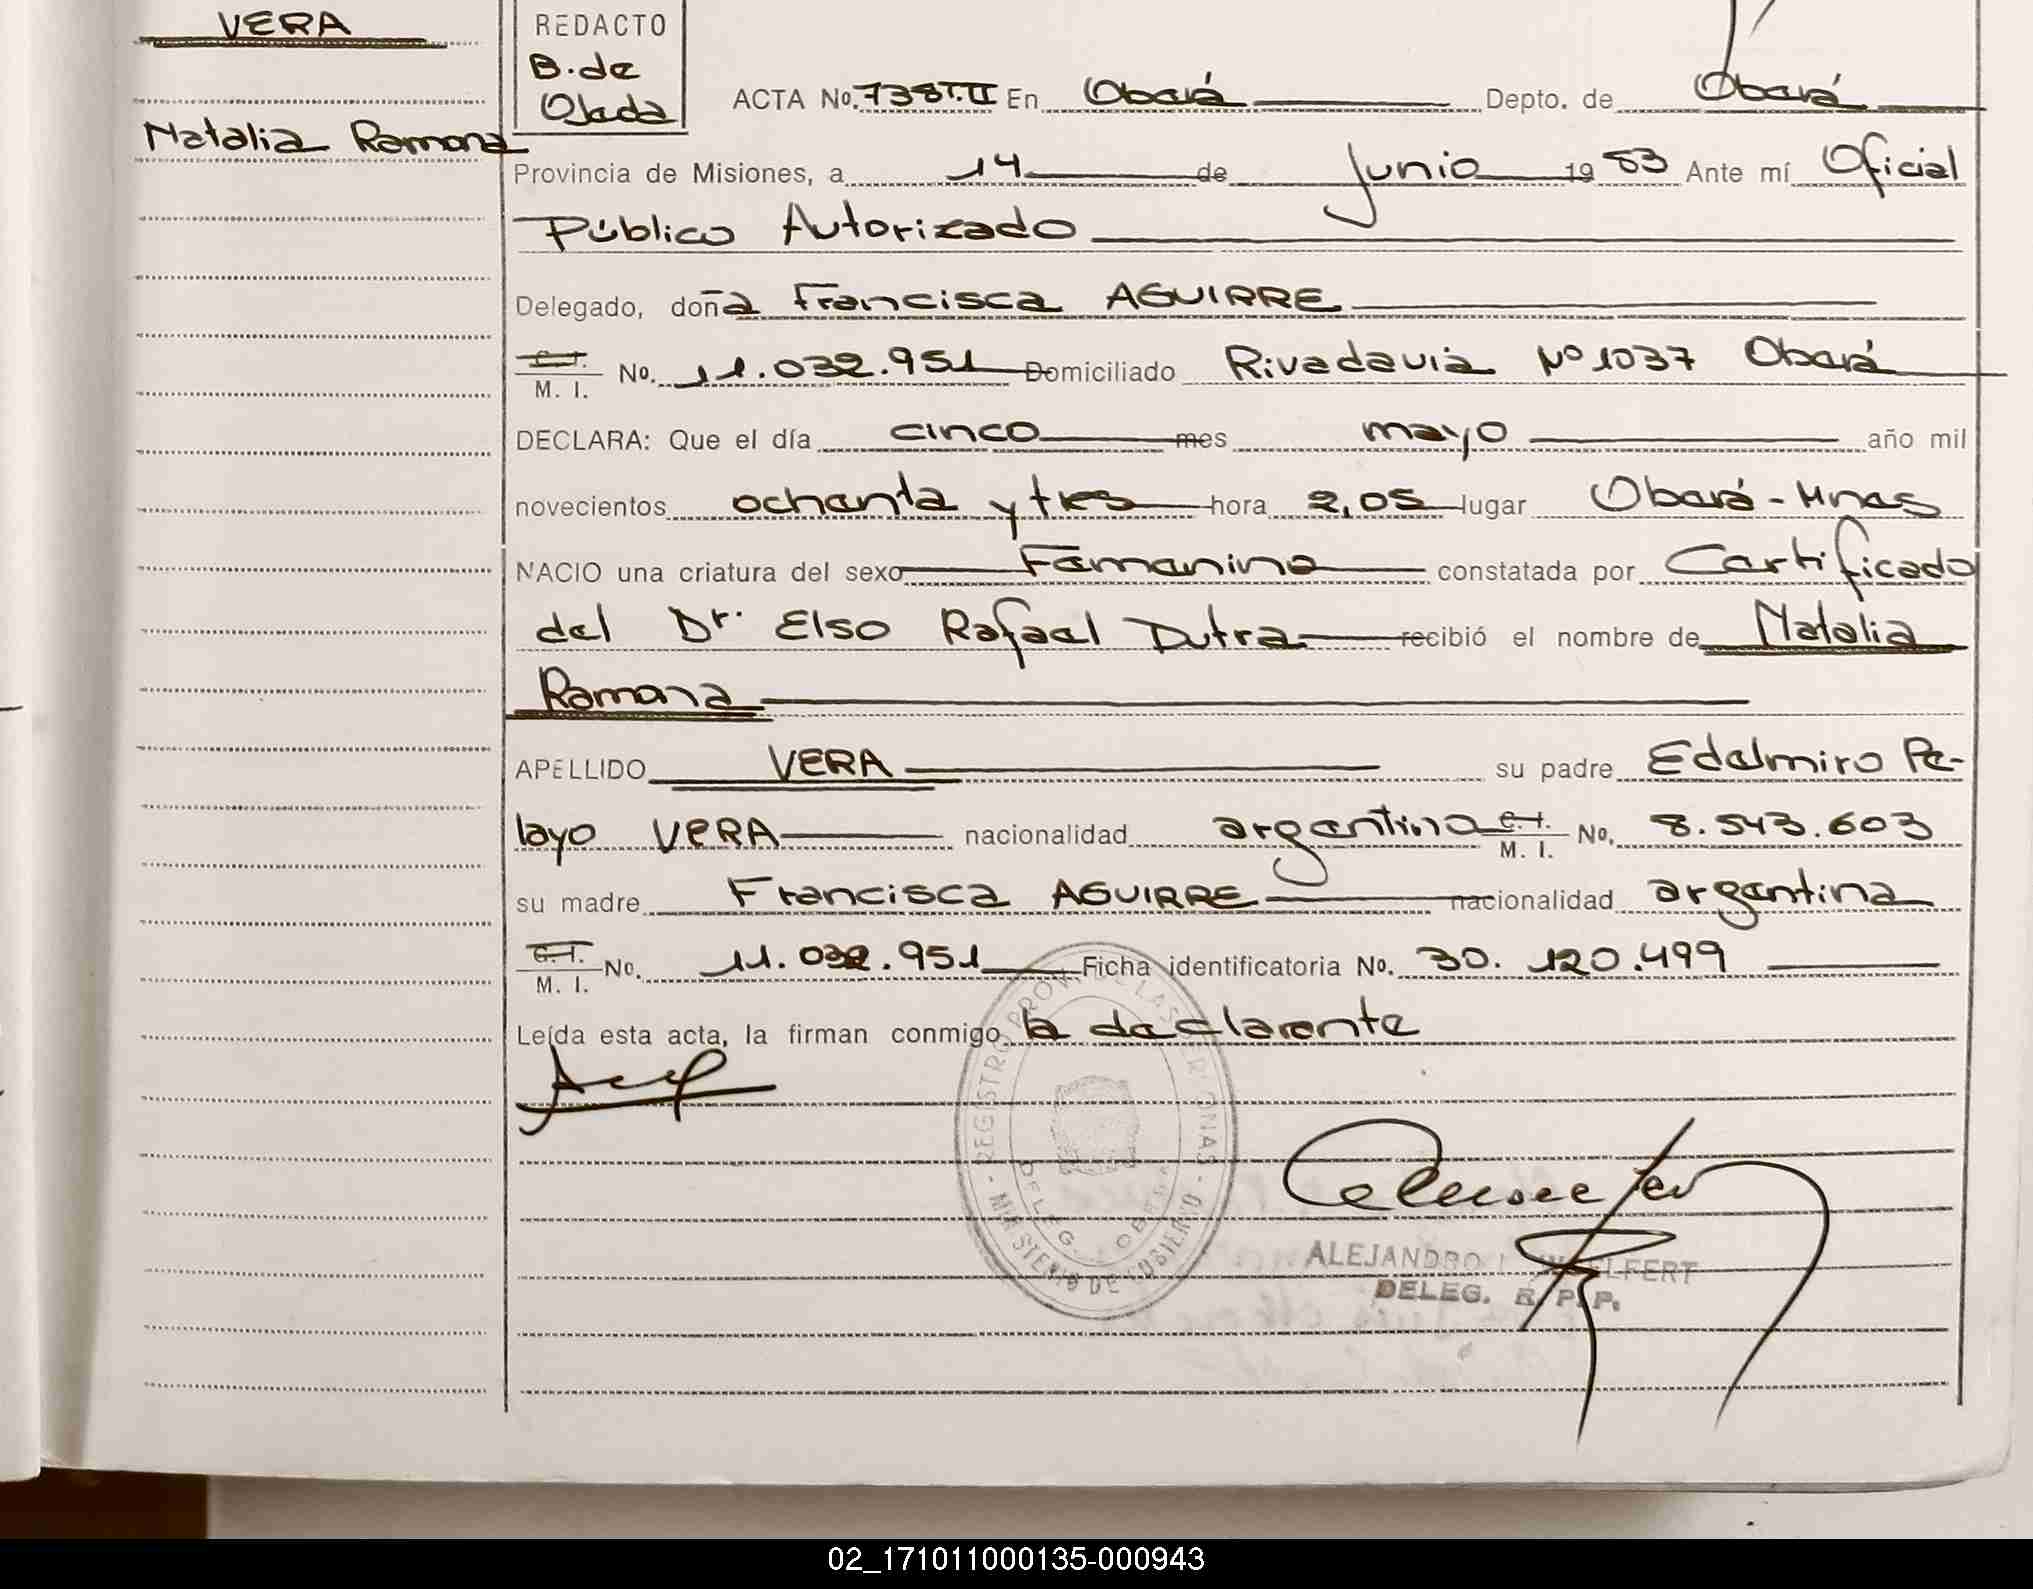 VERA
Natalia Ramona
REDACTO
B. de
Ojeda
ACTA No. 738T.II En Oberá Depto. de Oberá
Provincia de Misiones, a 14 de Junio 1983 Ante mí Oficial
Público Autorizado
Delegado, doña Francisca AGUIRRE
C.I.
M. I. No. 11.032.951 Domiciliado Rivadavia Nº 1037 Oberá
DECLARA: Que el día cinco mes mayo año mil
novecientos ochenta y tres hora 2,05 lugar Oberá - Mnes
NACIO una criatura del sexo Femenino constatada por Certificado
del Dr. Elso Rafael Dutra recibió el nombre de Natalia
Ramona
APELLIDO VERA su padre Edelmiro Pe-
layo VERA nacionalidad argentino C.I. M. I. No. 8.543.603
su madre Francisca AGUIRRE nacionalidad argentina
C.I.
M. I. No. 11.032.951 Ficha identificatoria No. 30.120.499
Leída esta acta, la firman conmigo, la declarante
REGISTRO PROV. DE LAS PERSONAS - MINISTERIO DE GOBIERNO
DELEG. OBERA
ALEJANDRO
DELEG. R. P. P.
02_171011000135-000943